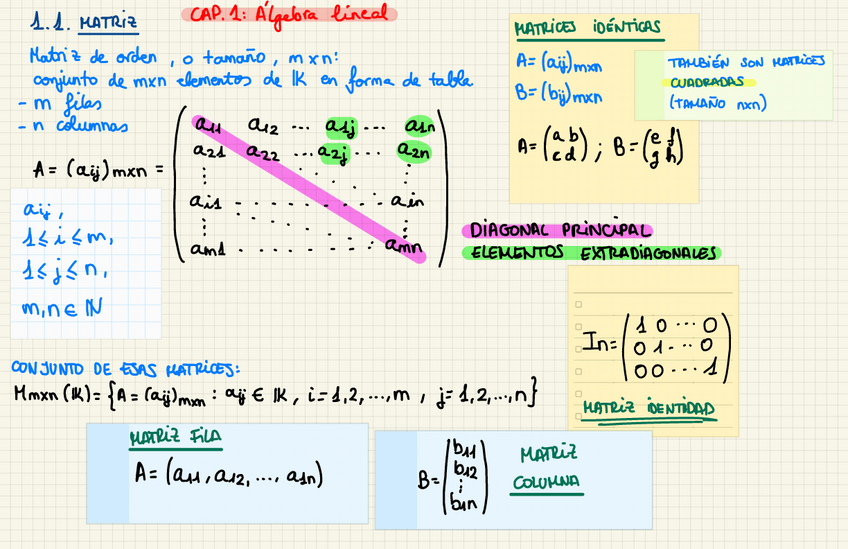 CAP. 1: Álgebra lineal
1.1. MATRIZ
Matriz de orden, o tamaño, mxn:
conjunto de mxn elementos de IK en forma de tabla
- m filas
- n columnas
A = (aij)mxn =
a11 a12 ... a1j ... a1n
a21 a22 ... a2j ... a2n
⋮ ⋮
ai1 . . . . . ain
⋮ ⋮
am1 . . . . . amn
aij,
1 ≤ i ≤ m,
1 ≤ j ≤ n,
m,n ∈ IN
MATRICES IDÉNTICAS
A = (aij)mxn
B = (bij)mxn
A = (a b
c d) ; B = (e f
g h)
TAMBIÉN SON MATRICES
CUADRADAS
(TAMAÑO nxn)
DIAGONAL PRINCIPAL
ELEMENTOS EXTRADIAGONALES
In = (1 0 ... 0
0 1 ... 0
0 0 ... 1)
MATRIZ IDENTIDAD
CONJUNTO DE ESAS MATRICES:
Mmxn (IK) = {A = (aij)mxn : aij ∈ IK, i = 1,2,...,m , j = 1,2,...,n}
MATRIZ FILA
A = (a11, a12, ..., a1n)
B = (b11
b12
⋮
b1n)
MATRIZ
COLUMNA